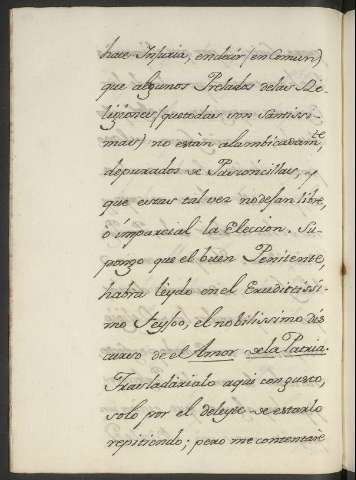 hace Injuria, en decir (en Comun)
que algunos Prelados de las Re-
ligiones (que todas son Santissi-
mas) no están alambicadamte
depurados de Passioncillas, y
que estas tal vez no dejan libre,
ô imparcial la Eleccion. Su-
pongo que el buen Penitente,
habrá leydo en el Eruditissi-
mo Feyjoo, el nobilissimo dis
curso de el Amor de la Patria.
Trasladáralo aqui con gusto,
solo por el deleyte de estarlo
repitiendo; pero me contentaré